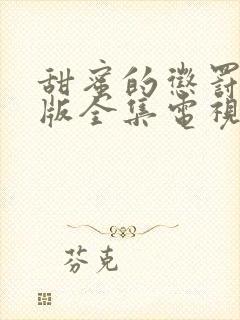 甜蜜的懲罰
版全集電視
芬克